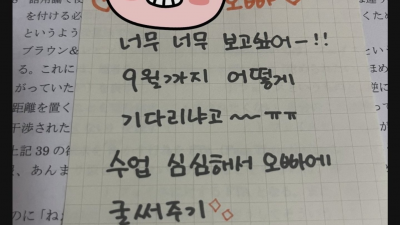 오빠
を付ける必
というよう
ブラウン&
る。これに
がっていた
距離を置く
干渉された
上記 39 の
のに「ね
너무 너무 보고싶어-!!
9월까지 어떻게
기다리냐고~~ㅠㅠ
수업 심심해서 오빠에
글써주기